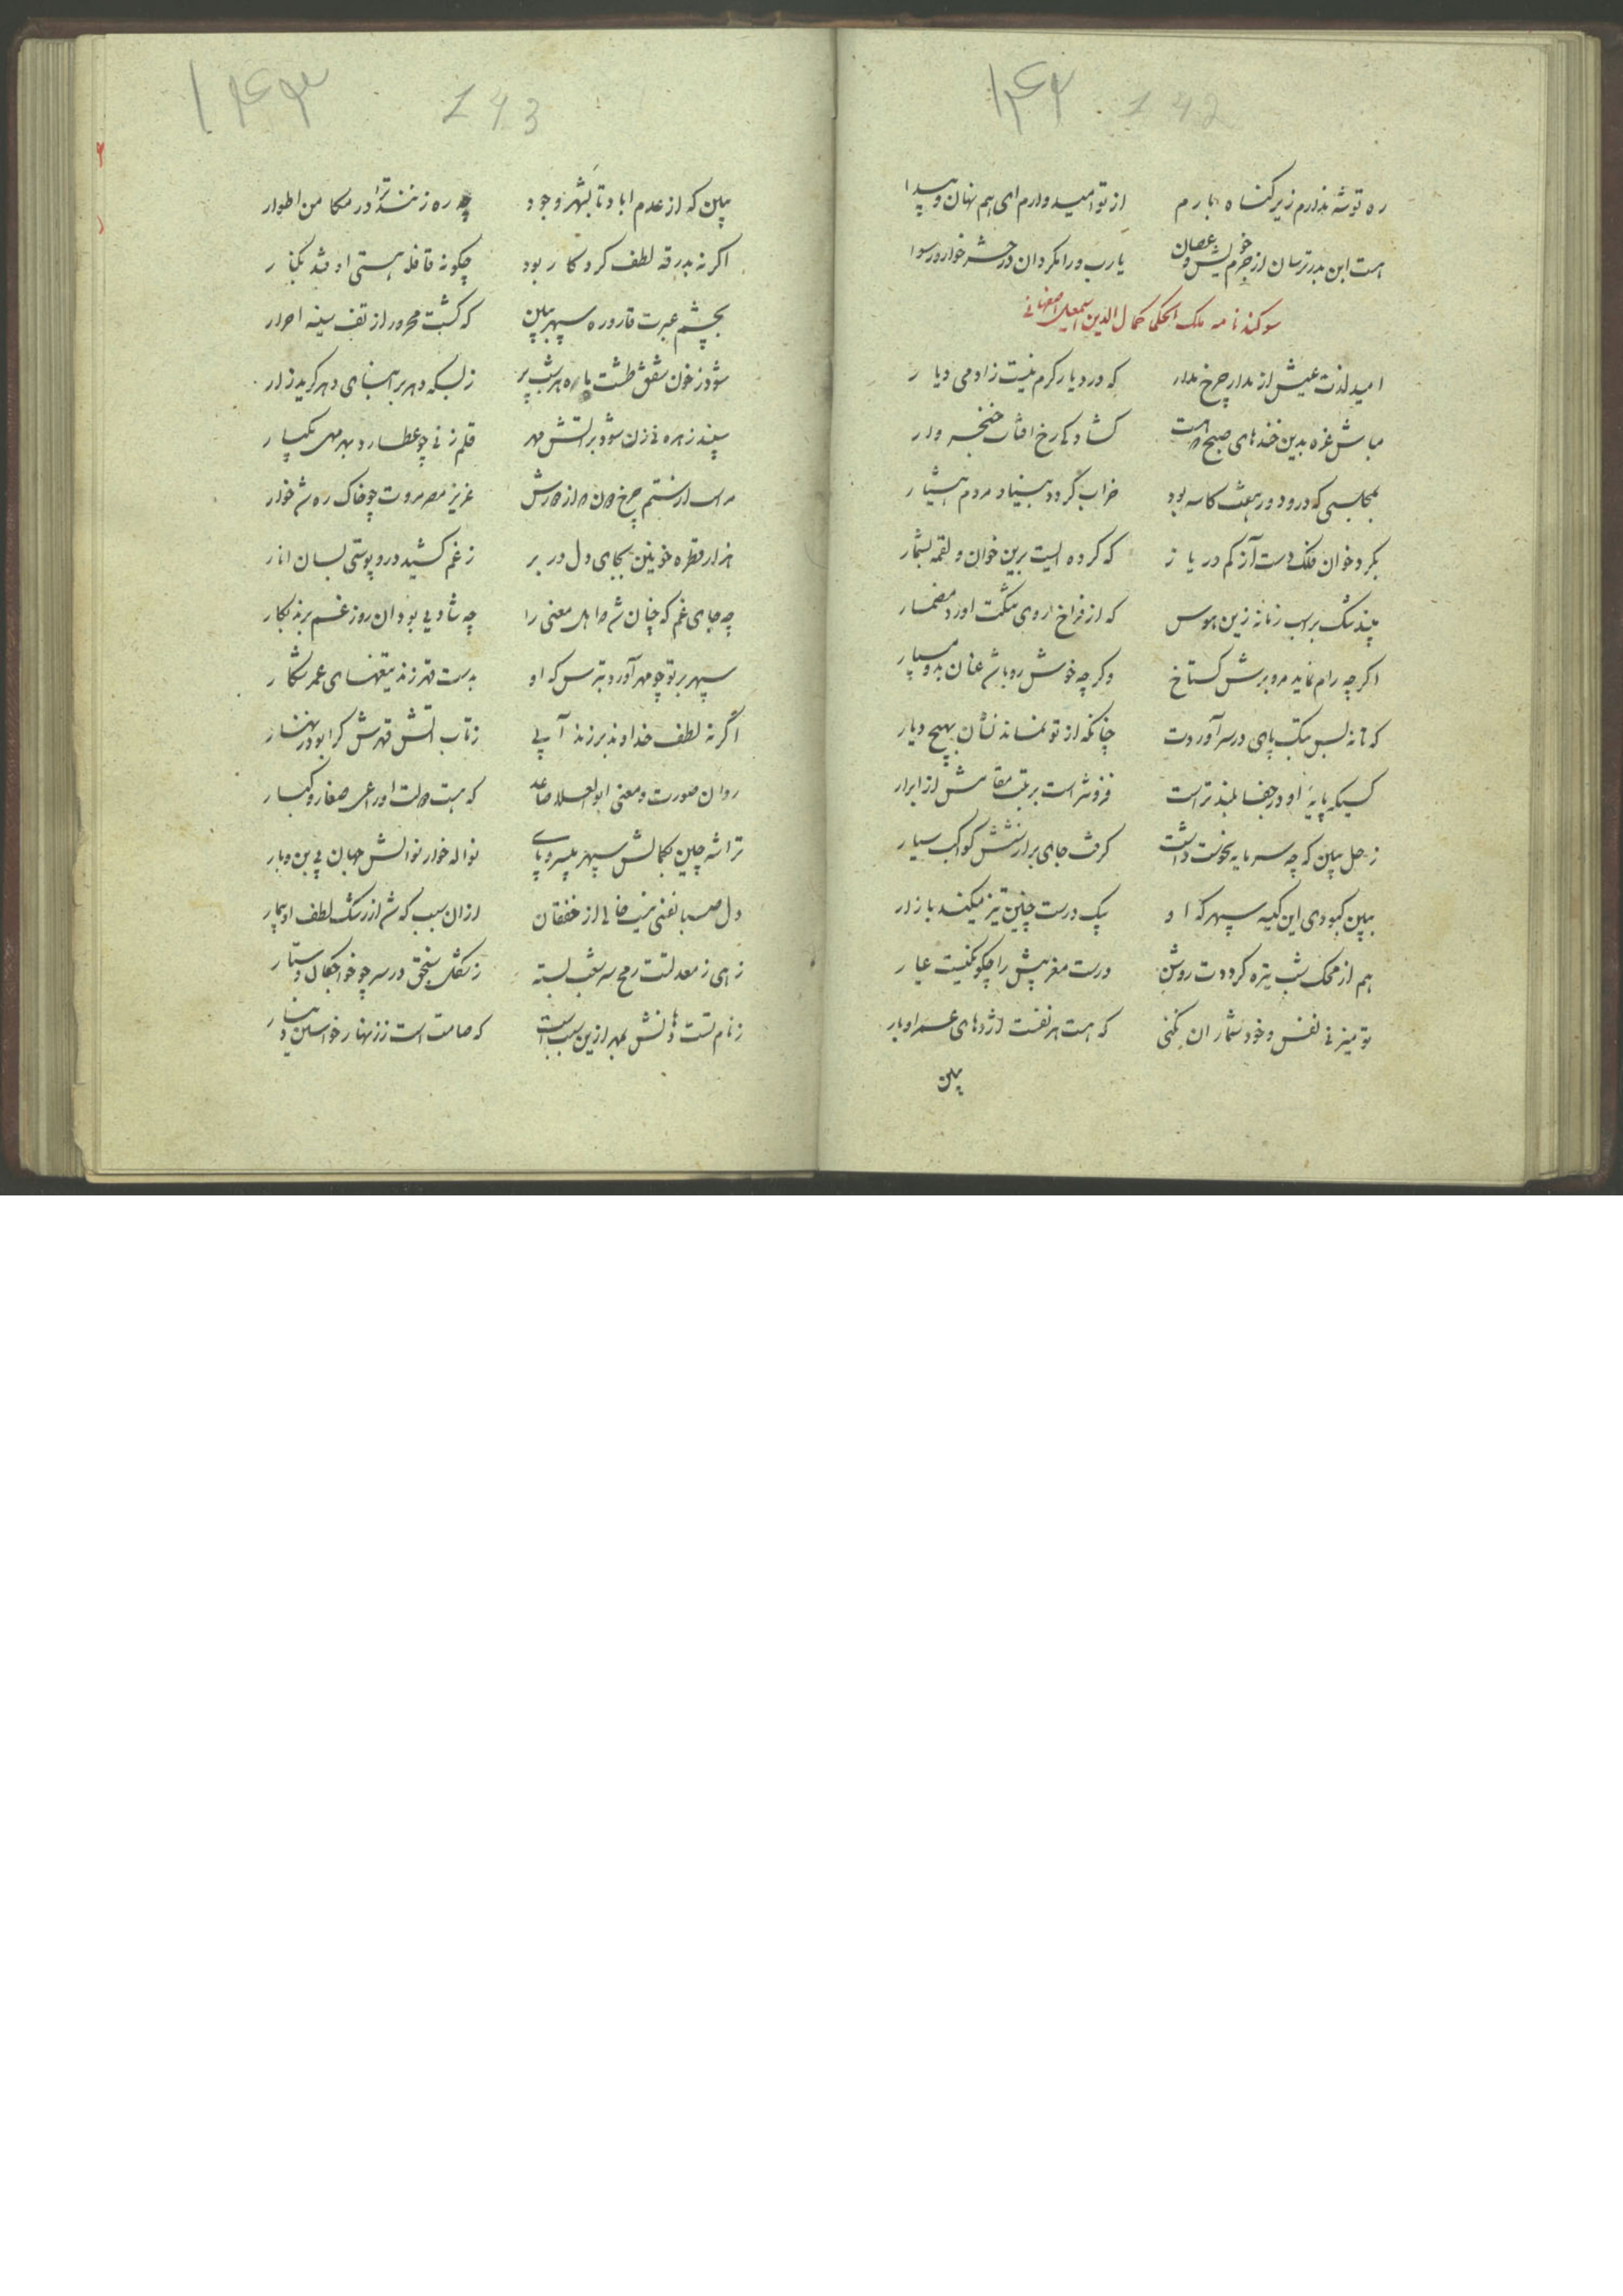 ۱۴۲ 142
ره توشه ندارم زیر گناه بارم از تو امیدوارم ای هم نهان و پیدا
هست ابن بدر ترسان از جرم خویش و عصیان یا رب ورا مگردان در حشر خوار و رسوا
سوکند نامه ملک الحکما کمال الدین اسمعیل اصفهانی
امید لذت عیش از مدار چرخ مدار که در دیار کرم نیست زادمی دیار
مباش غره بدین خندهای صبح که هست کشاد کی رخ افتاب خنجر وار
بمجلسی که درو دور هفت کاسه بود خراب گردد بنیاد مردم هشیار
بکرد خوان فلک دست آز کم در یاز که کرده ایست برین خوان و لقمه بشمار
مپند تنک بر اسب زمانه زین هوس که از فراخ روی تنکت اورد مضمار
اکرچه رام نماید مرو برش کستاخ وکرچه خوش رو باشد عنان بدو مسپار
که تا نه بس بتک پای در سر آوردت چنانکه از تو نماند نشان بهیچ دیار
کسیکه پایهٔ او در جفا بلند تر است فزونتر است برتبت مقامش از ابرار
زحل ببین که چه سرمایه نحوست داشت کرفت جای برازنش کواکب سیار
ببین کبودی این کیسه سپهر که او بیک درست چنین تیز میکند بازار
هم از محک شب تیره کرددت روشن درست مغربیش را که چکونکیست عیار
تو میزنی نفس و خود شمار ان نکنی که هست هر نفست اژدهای عمر اوبار
ببین
۱۴۳ 143
ببین که از عدم اباد تا بشهر وجود چه ره زنند ترا در مکامن اطوار
اکر نه بدرقه لطف کردکار بود چکونه قافله هستی اوفتد بکنار
بچشم عبرت قاروره سپهر ببین که کشت محرور از تف سینه احرار
شود ز خون شفق طشت ماه هر شب پر ز بسکه دهر بر ابنای دهر کرید زار
سپند زهره نی زن شود بر اتش مهر قلم زنی چو عطارد بدرهمی یکبار
عزیز مصر مروت چو خاک ره شد خوار
هزار قطره خونین بجای دل در بر ز غم کشیده درو پوستی بسان انار
چه جای غم که چنان شد که اهل معنی را چه شادیی بود ان روز غم برند بکار
سپهر بر تو چو مهر آورد بترس که او بدست قهر زند تیغهای عمر شکار
اگر نه لطف خداوند برزند آبی ز تاب اتش قهرش کرا بود زنهار
روان صورت و معنی ابو العلا صاعد که هست دولت اورا عی صغار و کبار
تراشه چین کمالش سپهر بیسر و پای نواله خوار نوالش جهان بی بن و بار
دل صبا نفسی نیست خالی از خفقان ازان سبب که شد از رشک لطف او بیمار
زهی ز معدلتت رمح سر بشب بسته ز شکل سنجق در سر چو خواجکان دستار
ز نام تست دهانش بمهر ازین سبب است که صامت است زر